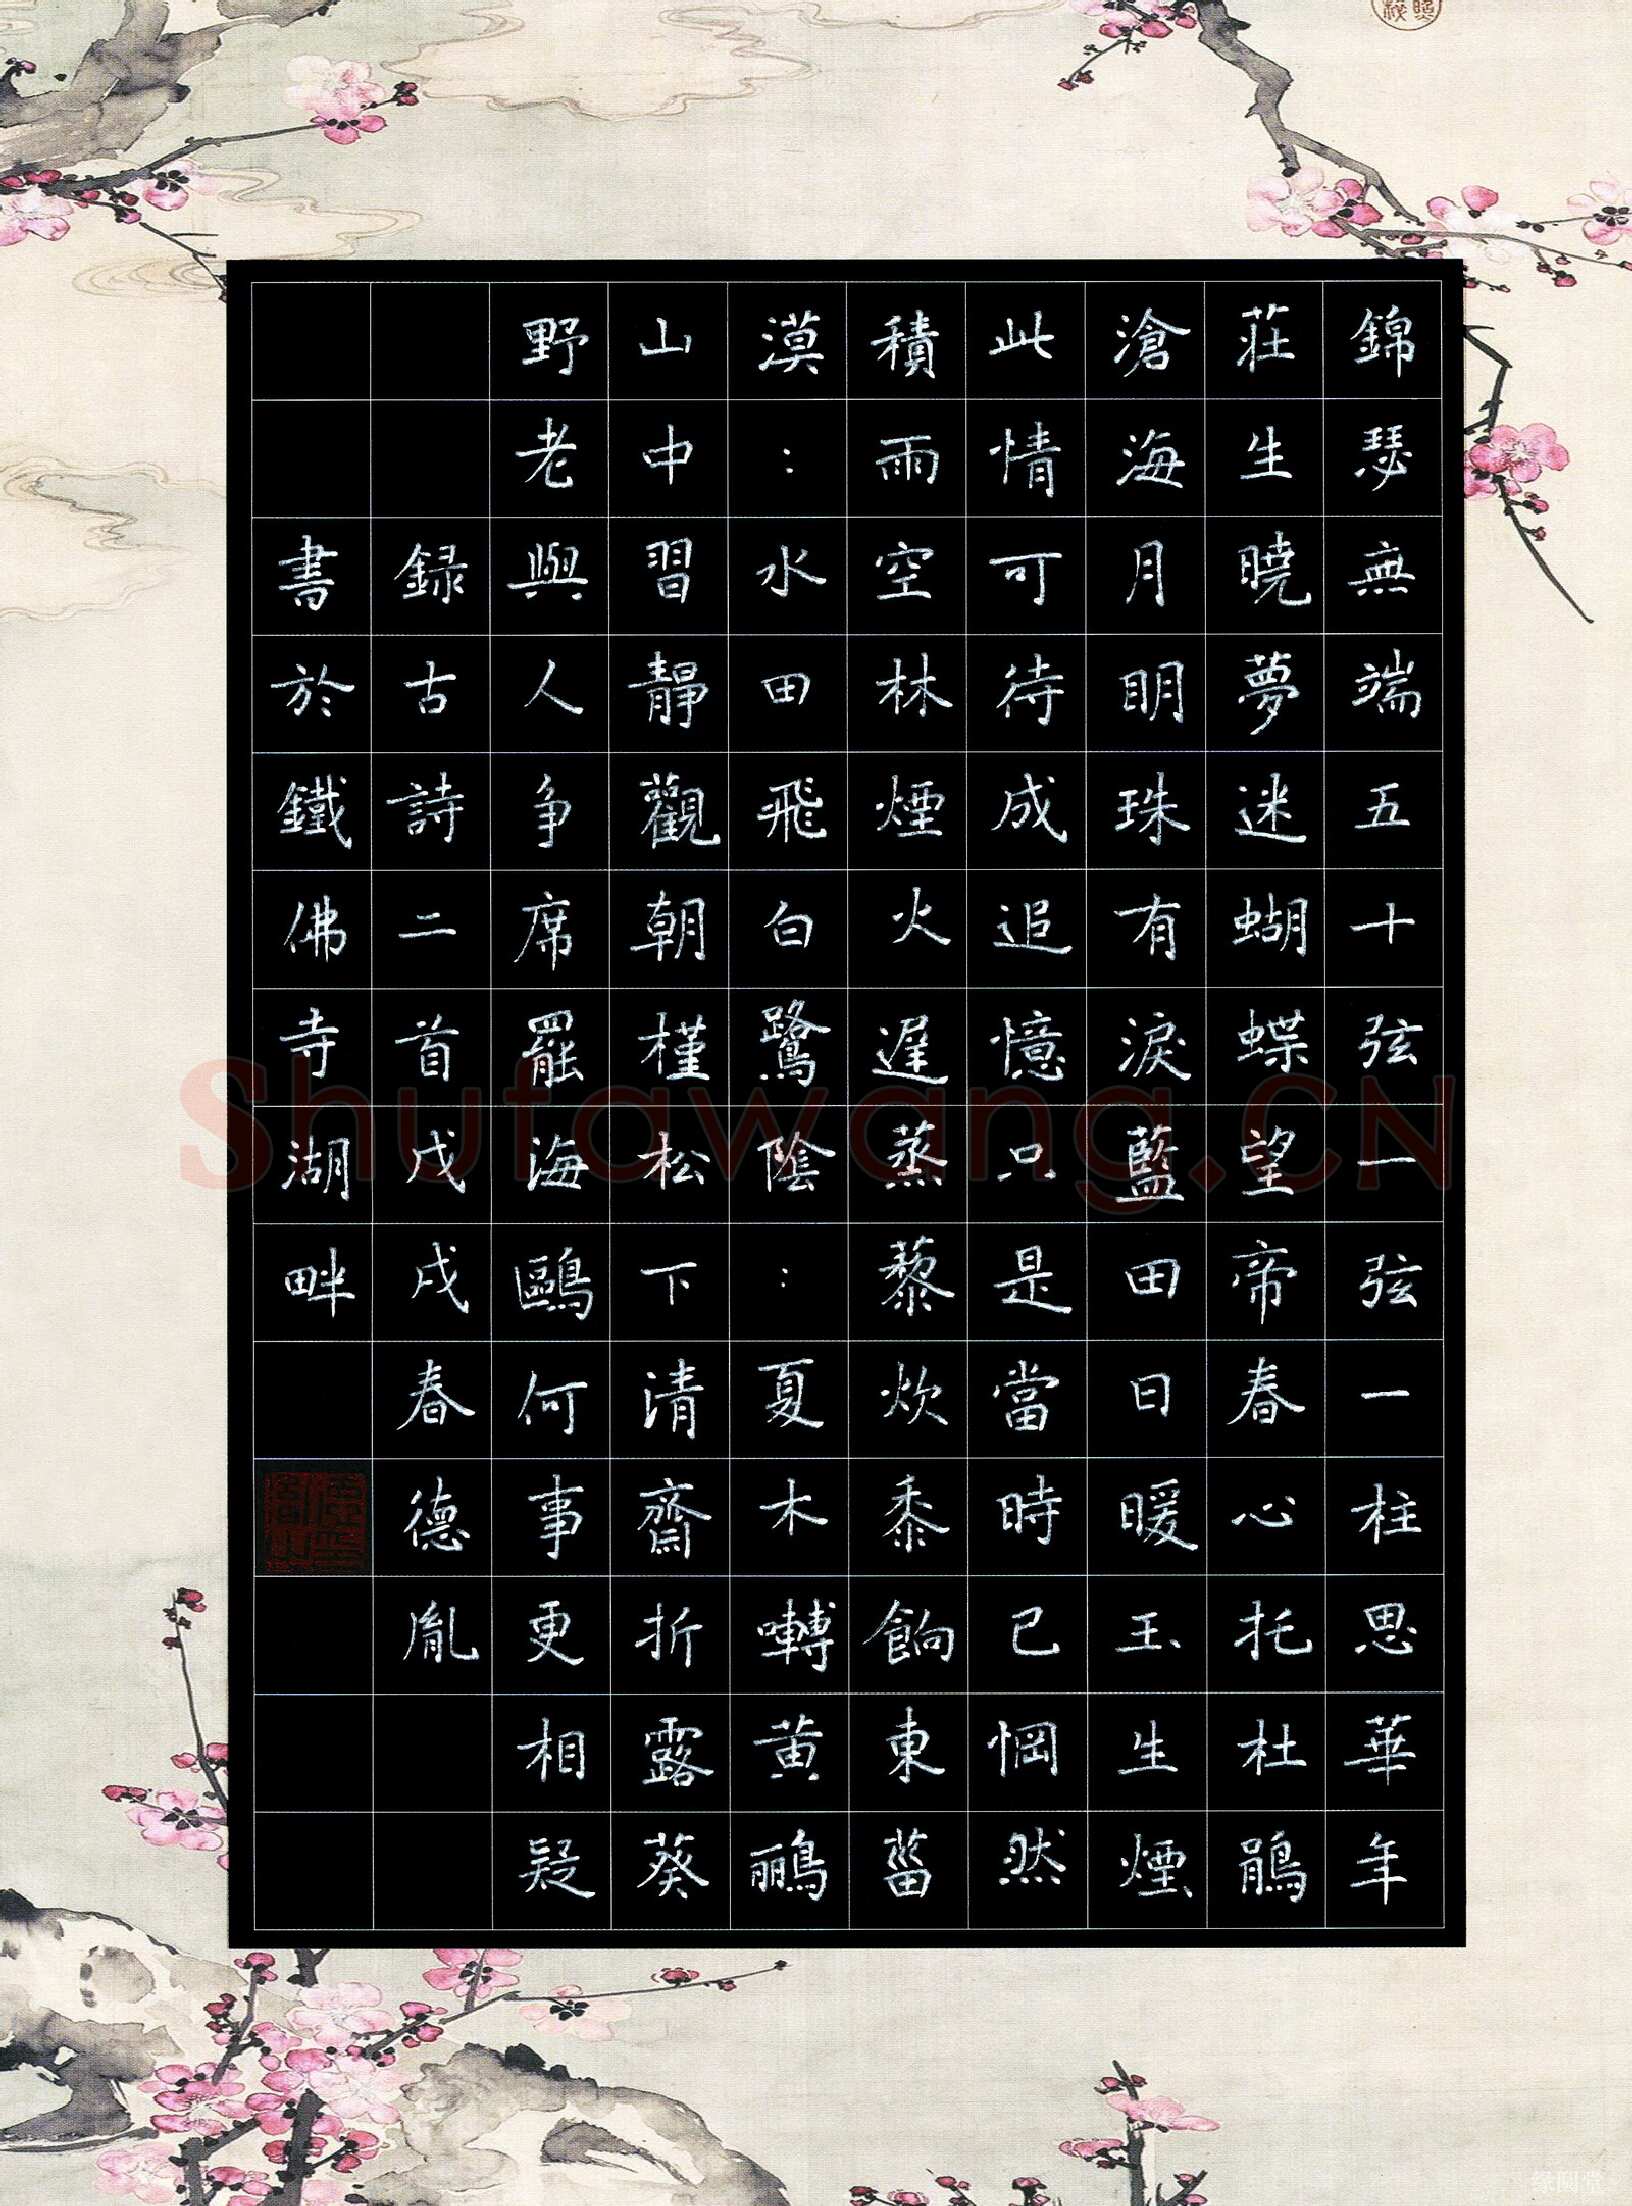 錦瑟無端五十弦一弦一柱思華年
莊生曉夢迷蝴蝶望帝春心托杜鵑
滄海月明珠有淚藍田日暖玉生煙
此情可待成追憶只是當時已惘然
積雨空林煙火遲蒸藜炊黍餉東菑
漠：水田飛白鷺陰：夏木囀黃鸝
山中習靜觀朝槿松下清齋折露葵
野老與人争席罷海鷗何事更相疑
録古詩二首戊戌春德胤
書於鐵佛寺湖畔
Shufawang.CN